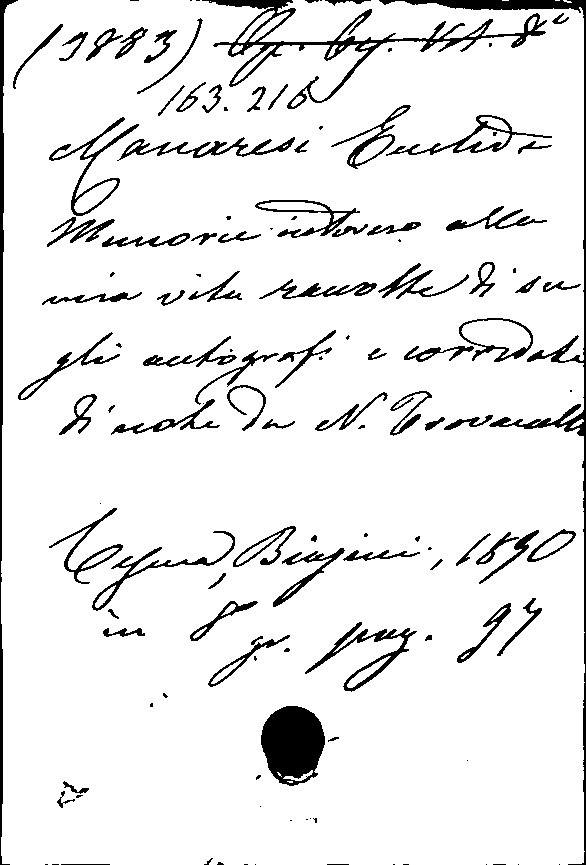 (3883)
163. 216
Manaresi Euclide
Memorie intorno alla
mia vita raccolte di su
gli autografi e corredate
di note da N. Trovanelli
Cesena, Biagini, 1890
in 8° gr. pag. 97